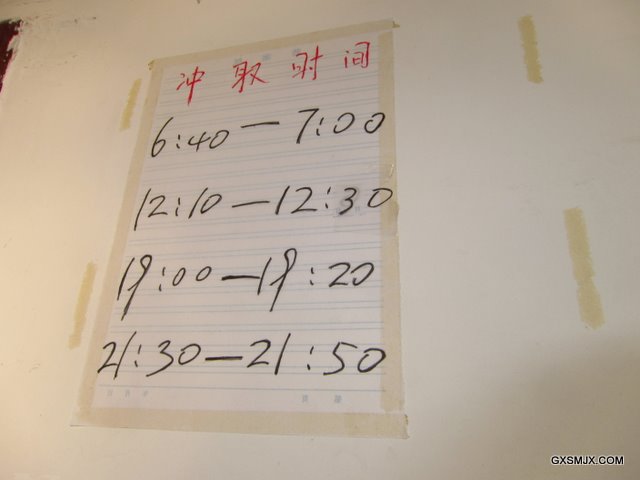 冲取时间
6:40—7:00
12:10—12:30
19:00—19:20
21:30—21:50
GXSMJX.COM